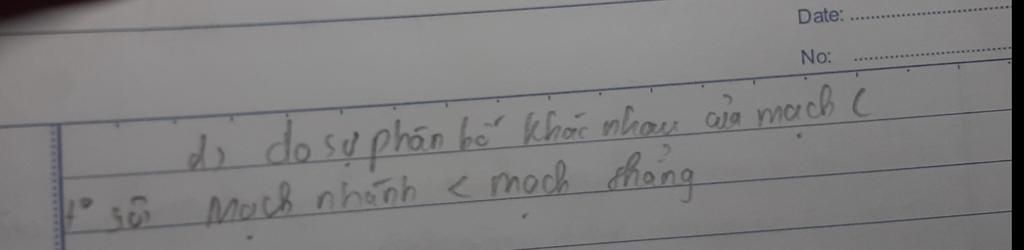 Date:
No:
d) do sự phân bố khác nhau của mạch C
t° sôi Mạch nhánh < mạch thẳng